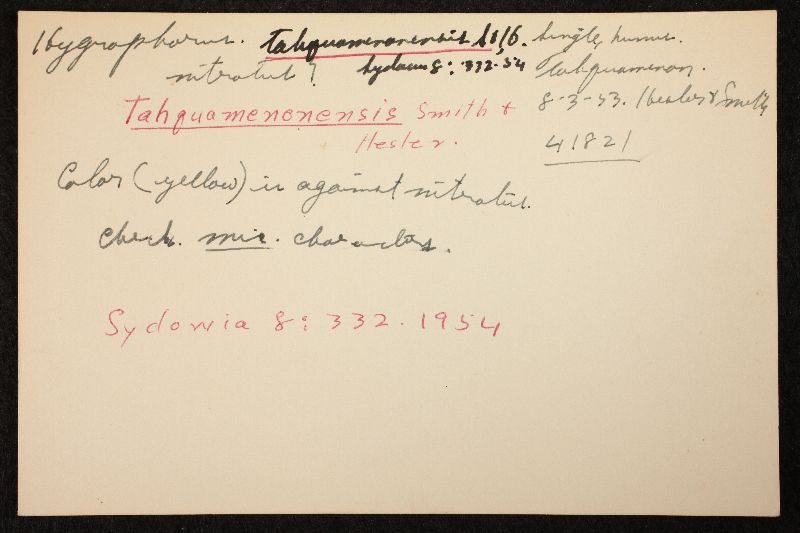 Hygrophorus. tahquamenonensis S & H. Single, humus.
nitratus? Sydowia 8: 332-54 Tahquamenon.
Tahquamenonensis Smith & 8-3-53. Hesler & Smith
Hesler. 41821
Color (yellow) is against nitratus.
Check. mic. characters.
Sydowia 8: 332. 1954